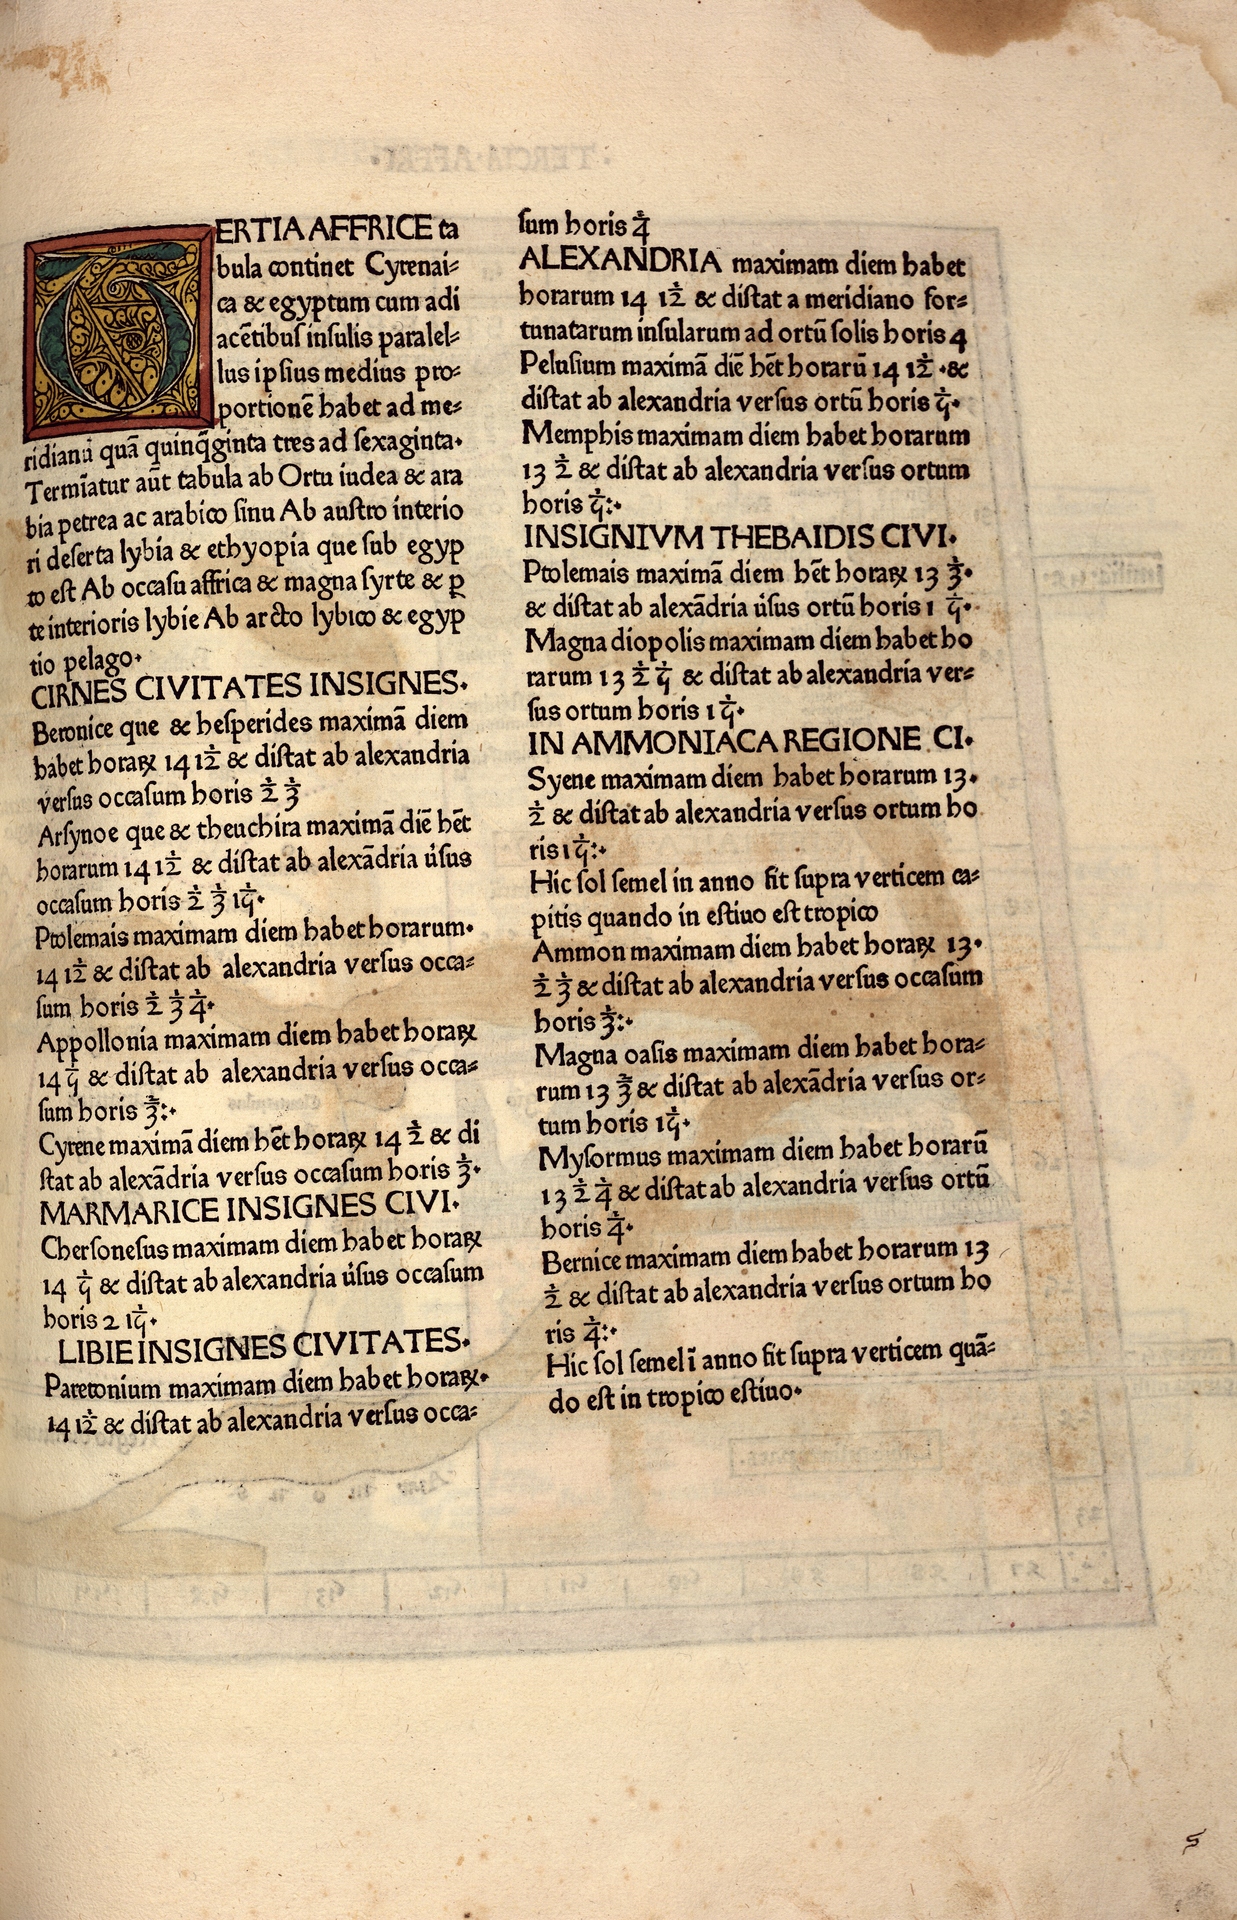 TERTIA AFFRICE ta
bula continet Cyrenai⸗
ca & egyptum cum adi
acētibuſ inſulis paralel⸗
lus ipſius medius pro⸗
portionē habet ad me⸗
ridianū quā quinq̄ginta tres ad ſexaginta.
Termīatur aūt tabula ab Ortu iudea & ara
bia petrea ac arabico ſinu Ab auſtro interio
ri deſerta lybia & ethyopia que ſub egyp
to eſt Ab occaſu affrica & magna ſyrte & ꝑ
te interioris lybie Ab arcto lybico & egyp
tio pelago.
CIRNES CIVITATES INSIGNES.
Beronice que & heſperides maximā diem
habet horaꝝ 14 1\2 & diſtat ab alexandria
verſus occaſum horis 1\2 1\3
Arſynoe que & theuchira maximā diē hēt
horarum 14 1\2 & diſtat ab alexādria ủſus
occaſum horis 1\2 1\3 1\9.
Ptolemais maximam diem habet horarum.
14 1\2 & diſtat ab alexandria verſus occa⸗
ſum horis 1\2 1\3 1\4.
Appollonia maximam diem habet horaꝝ
14 1\9 & diſtat ab alexandria verſus occa⸗
ſum horis 1\3:.
Cyrene maximā diem hēt horaꝝ 14 1\2 & di
ſtat ab alexādria verſus occaſum horis 1\3.
MARMARICE INSIGNES CIVI.
Cherſoneſus maximam diem habet horaꝝ
14 1\9 & diſtat ab alexandria ủſus occaſum
horis 2 1\9.
LIBIE INSIGNES CIVITATES.
Paretonium maximam diem habet horaꝝ.
14 1\2 & diſtat ab alexandria verſus occa⸗
ſum horis 1\4
ALEXANDRIA maximam diem habet
horarum 14 1\2 & diſtat a meridiano for⸗
tunatarum inſularum ad ortū ſolis horis 4
Peluſium maximā diē hēt horarū 14 1\2 .&
diſtat ab alexandria verſus ortū horis 1\9.
Memphis maximam diem habet horarum
13 1\2 & diſtat ab alexandria verſus ortum
horis 1\9:.
INSIGNIVM THEBAIDIS CIVI.
Ptolemais maximā diem hēt horaꝝ 13 1\3.
& diſtat ab alexādria ủſus ortū horis 1 1\9.
Magna diopolis maximam diem habet ho
rarum 13 1\2 1\9 & diſtat ab alexandria ver⸗
ſus ortum horis 1 1\9.
IN AMMONIACA REGIONE CI.
Syene maximam diem habet horarum 13.
1\2 & diſtat ab alexandria verſus ortum ho
ris 1 1\9:.
Hic ſol ſemel in anno fit ſupra verticem ca⸗
pitis quando in eſtiuo eſt tropico
Ammon maximam diem habet horaꝝ 13.
1\2 1\3 & diſtat ab alexandria verſus occaſum
horis 1\3:.
Magna oaſis maximam diem habet hora⸗
rum 13 1\3 & diſtat ab alexādria verſus or⸗
tum horis 1\9.
Myſormus maximam diem habet horarū
13 1\2 1\4 & diſtat ab alexandria verſus ortū
horis 1\4.
Bernice maximam diem habet horarum 13
1\2 & diſtat ab alexandria verſus ortum ho
ris 1\4:.
Hic ſol ſemel ī anno fit ſupra verticem quā⸗
do eſt in tropico eſtiuo.